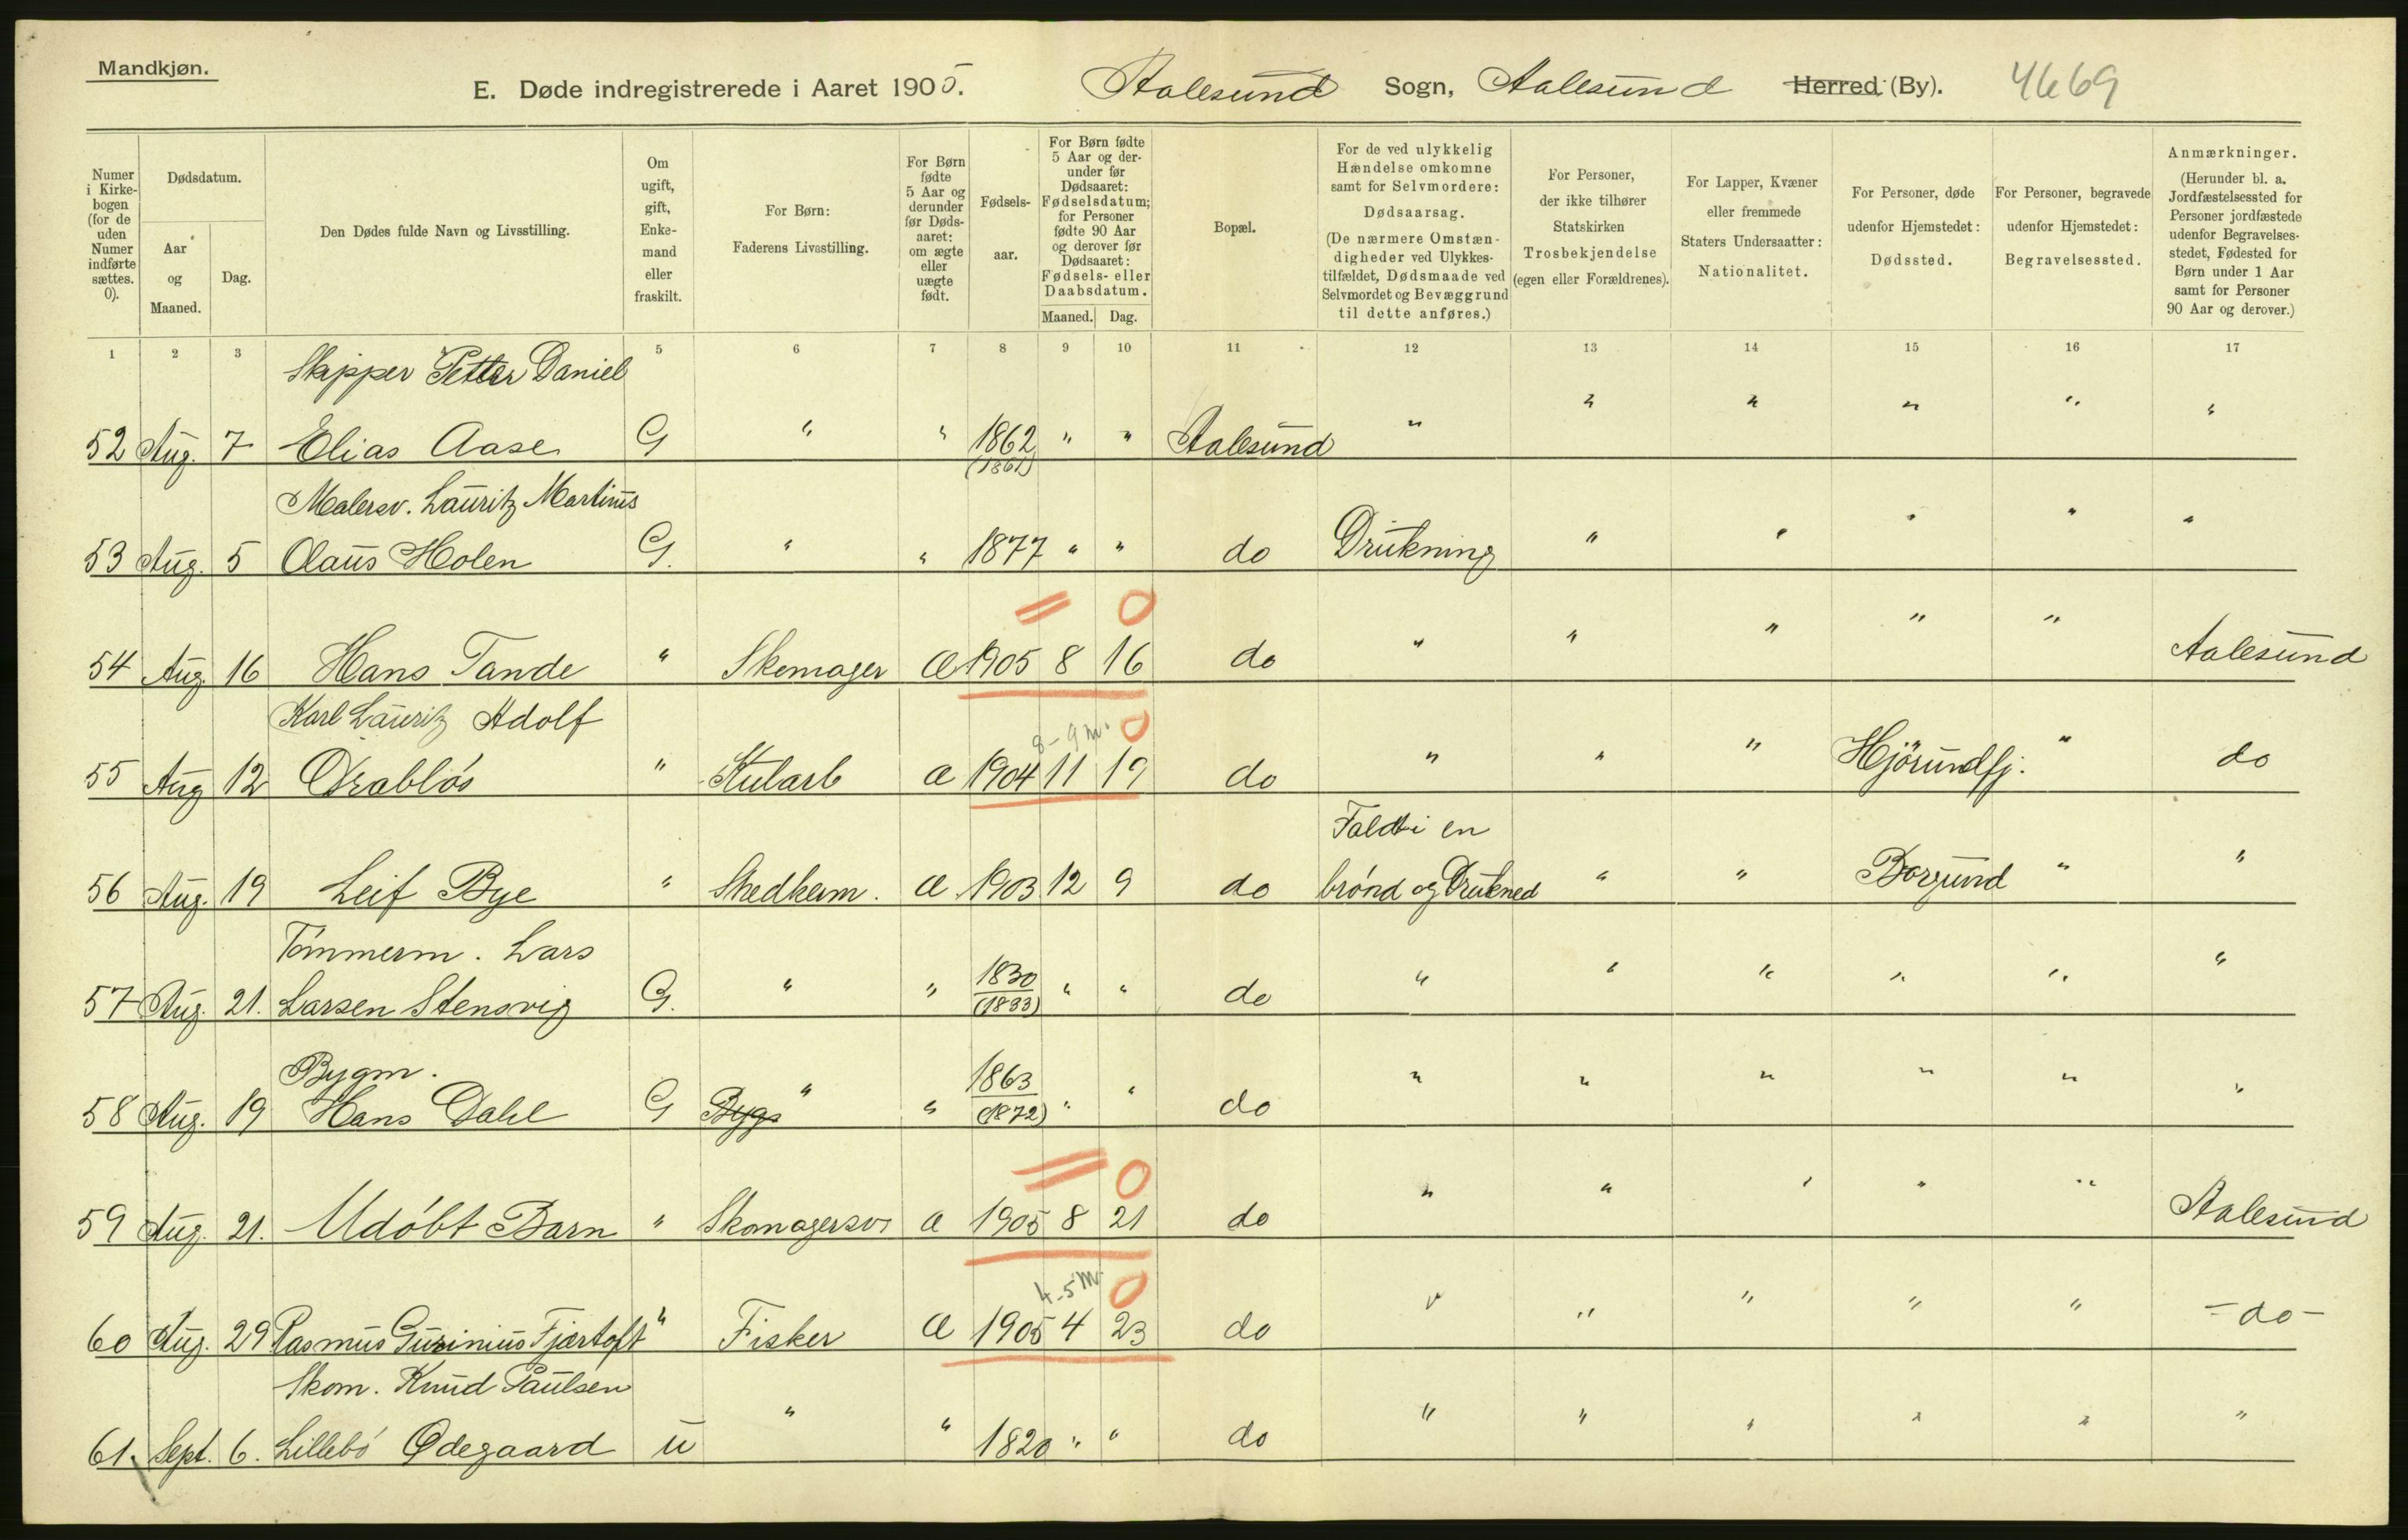 Mandkjøn.
E. Døde indregistrerede i Aaret 1905. Aalesund Sogn, Aalesund Herred (By). 4669
Numer i Kirkebogen (for de uden Numer indførte sættes. 0).
Dødsdatum.
Aar og Maaned.
Dag.
Den Dødes fulde Navn og Livsstilling.
Om ugift, gift, Enkemand eller fraskilt.
For Børn: Faderens Livsstilling.
For Børn fødte 5 Aar og derunder før Dødsaaret: om ægte eller uægte født.
Fødselsaar.
For Børn fødte 5 Aar og derunder før Dødsaaret: Fødselsdatum; for Personer fødte 90 Aar og derover før Dødsaaret: Fødsels- eller Daabsdatum.
Maaned. Dag.
Bopæl.
For de ved ulykkelig Hændelse omkomne samt for Selvmordere: Dødsaarsag. (De nærmere Omstændigheder ved Ulykkestilfældet, Dødsmaade ved Selvmordet og Bevæggrund til dette anføres.)
For Personer, der ikke tilhører Statskirken Trosbekjendelse (egen eller Forældrenes).
For Lapper, Kvæner eller fremmede Staters Undersaatter: Nationalitet.
For Personer, døde udenfor Hjemstedet: Dødssted.
For Personer, begravede udenfor Hjemstedet: Begravelsessted.
Anmærkninger. (Herunder bl. a. Jordfæstelsessted for Personer jordfæstede udenfor Begravelsesstedet, Fødested for Børn under 1 Aar samt for Personer 90 Aar og derover.)
1 2 3 5 6 7 8 9 10 11 12 13 14 15 16 17
Skipper Petter Daniel
52 Aug. 7 Elias Aase G " " 1862 " " Aalesund " " " " " "
(1861)
Malersv. Lauritz Martinus
53 Aug. 5 Olaus Holen G. " " 1877 " " do Drukning " " " " "
= 0
54 Aug. 16 Hans Tande " Skomager Æ 1905 8 16 do " " " " " Aalesund
Karl Lauritz Adolf
8-9 m. 0
55 Aug 12 Drabløs " Stularb Æ 1904 11 19 do " " " Hjörundfj. " do
Faldt i en
56 Aug. 19 Leif Bye " Æ 1903 12 9 do brønd og Drukned " " Borgund " "
Tømmerm. Lars
57 Aug. 21. Larsen Stensvig G. " " 1830 " " do " " " " " "
(1833)
Bygm.
58 Aug. 19 Hans Dahl G Bygs " " 1863 " " do " " " " " "
(1872)
= 0
59 Aug. 21. Udøbt Barn " Skomagersv Æ 1905 8 21 do " " " " " Aalesund
4-5 m. 0
60 Aug. 29 Rasmus Gurinius Fjørtoft " Fisker Æ 1905 4 23 do " " " " " - do -
Skom. Knud Paulsen
61. Sept. 6. Lillebø Ødegaard u " " 1820 " " do " " " " " "